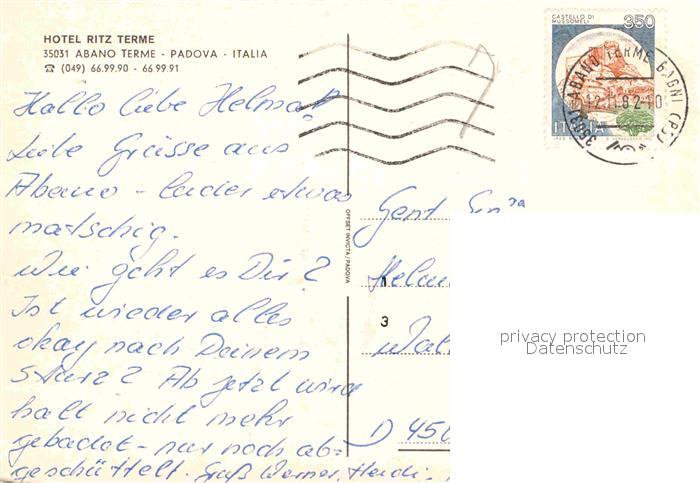 HOTEL RITZ TERME
35031 ABANO TERME - PADOVA - ITALIA
☎ (049) 66.99.90 - 66.99.91
Hallo liebe Helma!
Liebe Grüsse aus
Abano - leider etwas
matschig.
Wie geht es Dir?
Ist wieder alles
okay nach Deinem
Sturz? Ab jetzt wird
halt nicht mehr
gebadet - nur noch ab-
geschüttelt. Gruß Werner, Heidi
OFFSET INVICTA/PADOVA
CASTELLO DI
MUSSOMELI
350
ITALIA
35031 ABANO TERME
12.11.82-10
Gent
Helm
1
3
D 450
privacy protection
Datenschutz